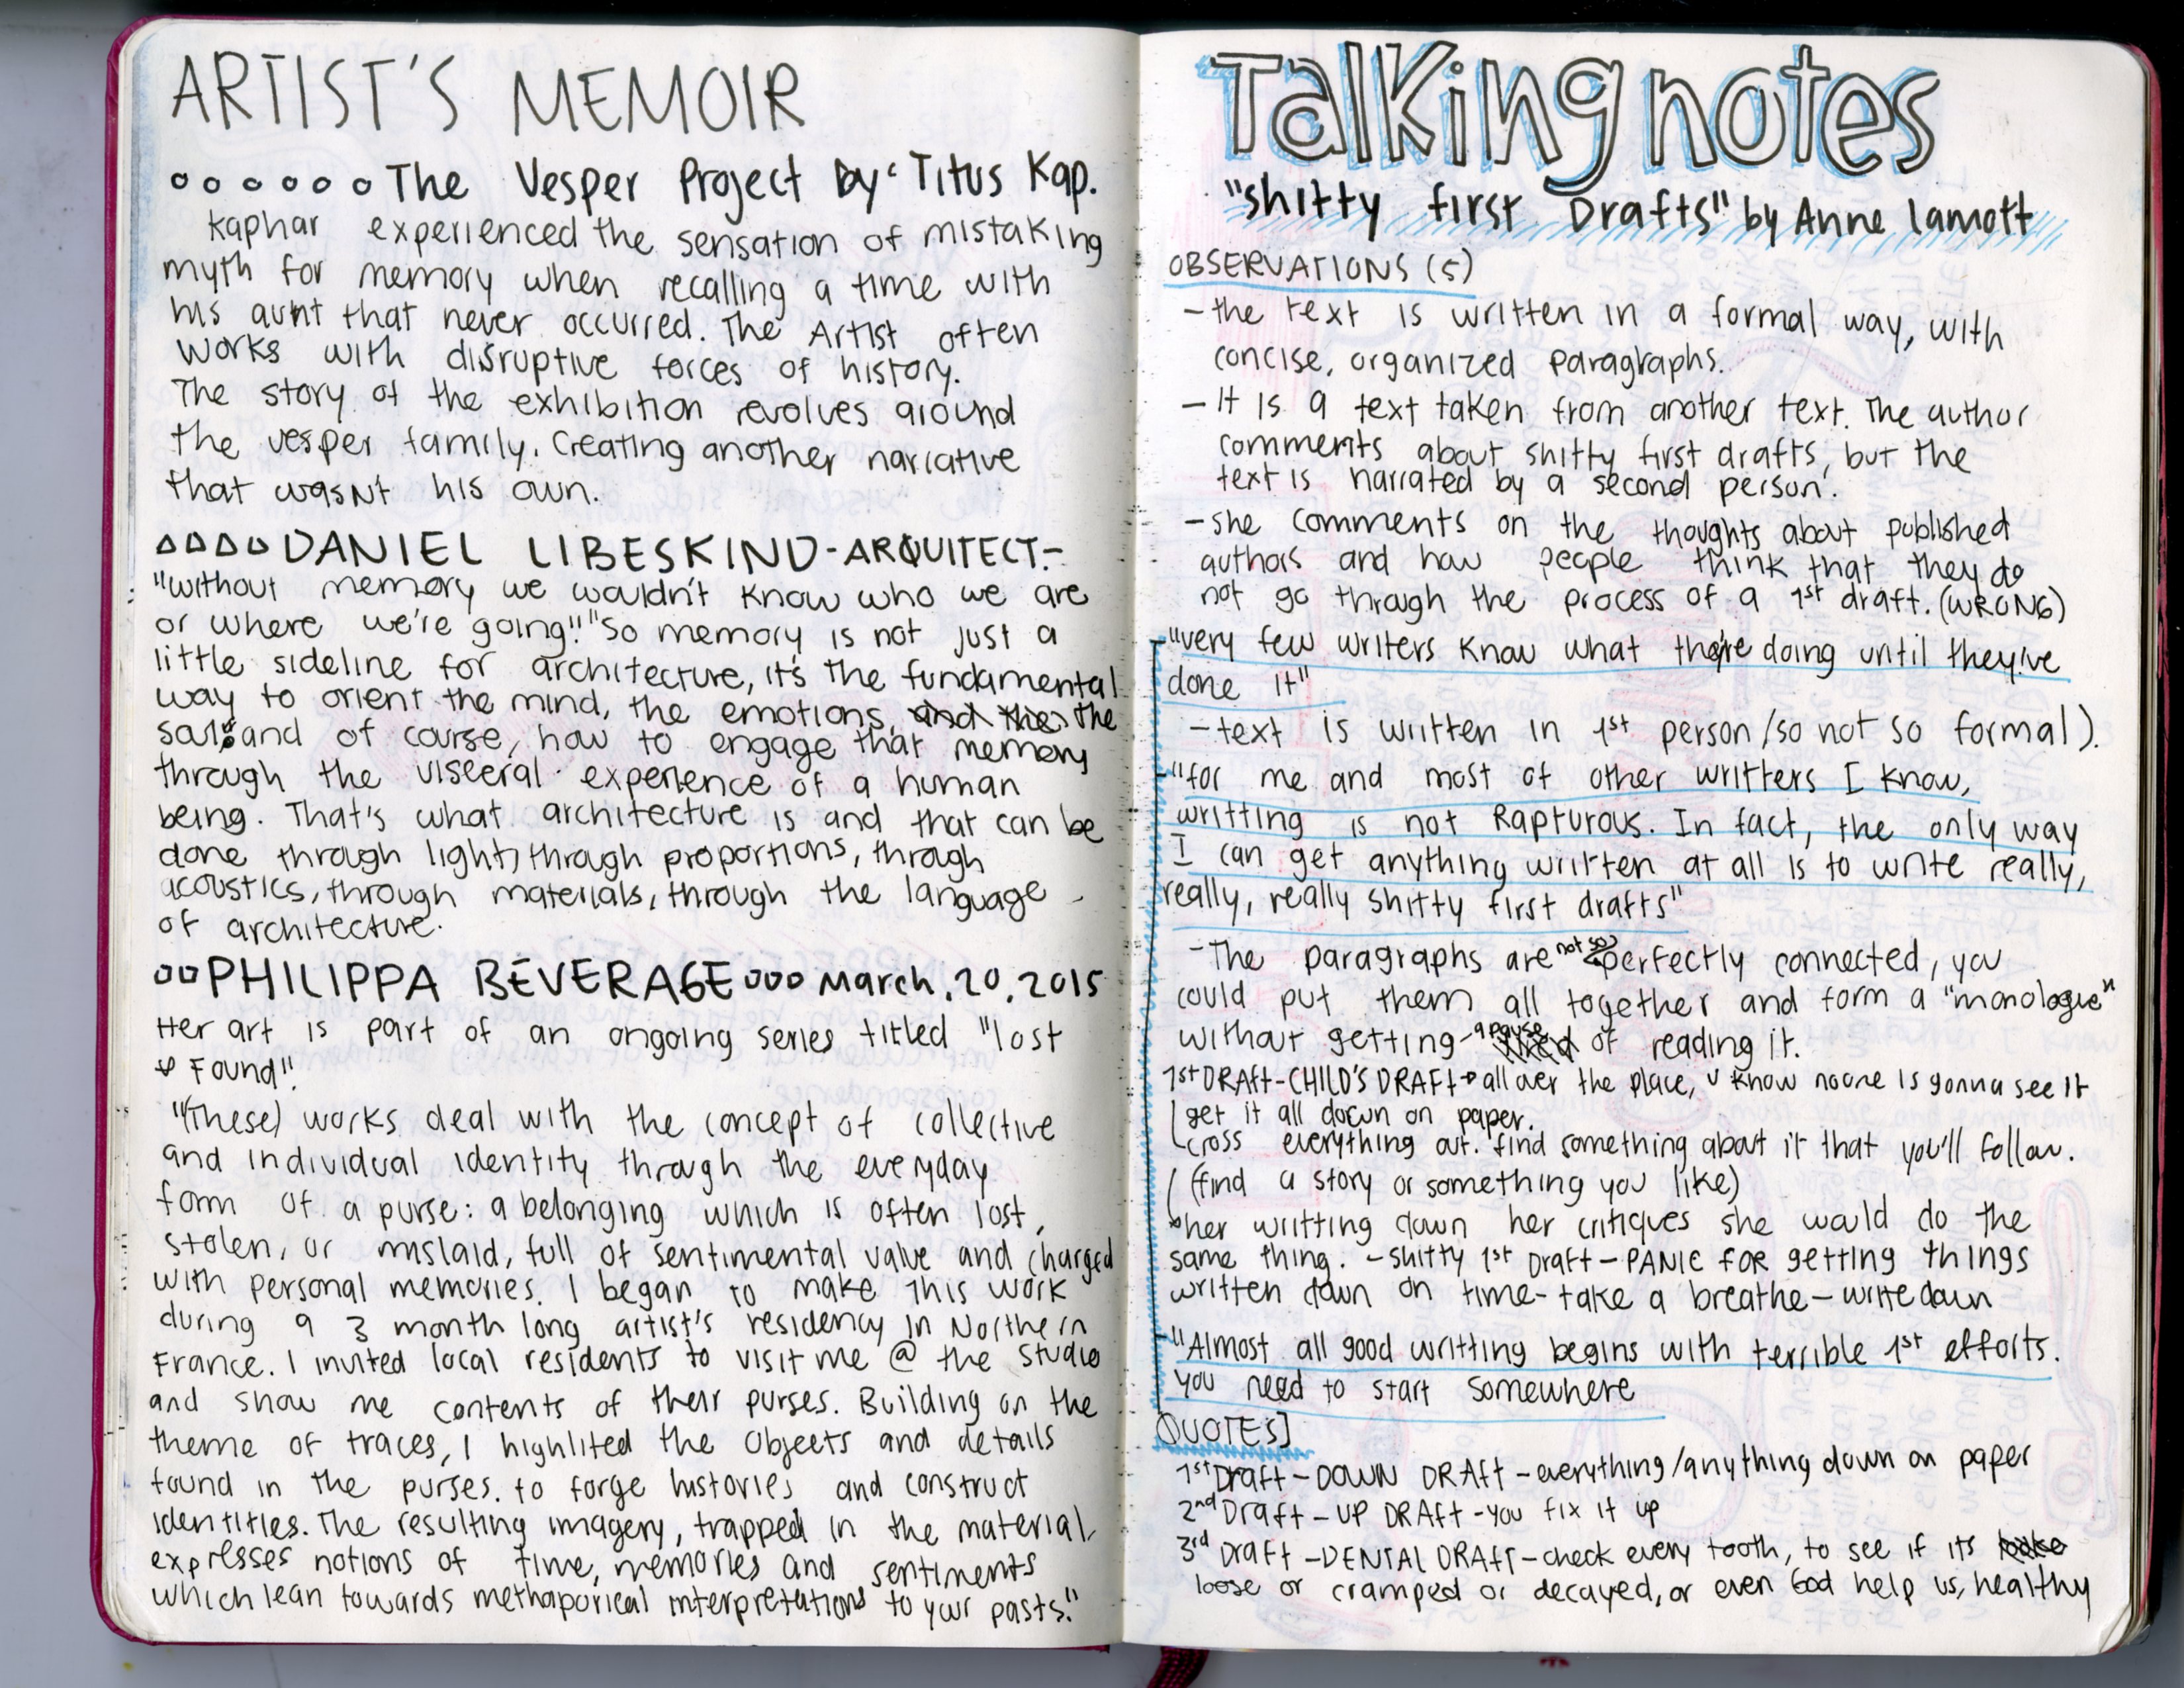 ARTIST'S MEMOIR
The Vesper Project by: Titus Kap.
Kaphar experienced the sensation of mistaking
myth for memory when recalling a time with
his aunt that never occurred. The Artist often
works with disruptive forces of history.
The story of the exhibition revolves around
the vesper family. Creating another narrative
that wasn't his own.
DANIEL LIBESKIND-ARQUITECT.-
"without memory we wouldn't know who we are
or where we're going!" "So memory is not just a
little sideline for architecture, it's the fundamental
way to orient the mind, the emotions, and the the
and of course, how to engage that memory
through the visceral experience of a human
being. That's what architecture is and that can be
done through light, through proportions, through
acoustics, through materials, through the language
of architecture.
PHILIPPA BEVERAGE March.20.2015
Her art is part of an ongoing series titled "lost
& Found".
"(These) works deal with the concept of collective
and individual identity through the everyday
form of a purse: a belonging which is often lost,
stolen, or mislaid, full of sentimental value and charged
with personal memories. I began to make this work
during a 3 month long artist's residency in Northern
France. I invited local residents to visit me @ the studio
and show me contents of their purses. Building on the
theme of traces, I highlited the objects and details
found in the purses. to forge histories and construct
identities. The resulting imagery, trapped in the material,
expresses notions of time, memories and sentiments
which lean towards methaporical interpretations to your pasts."
Talking notes
"shitty first Drafts" by Anne lamott
OBSERVATIONS (5)
- the text is written in a formal way, with
concise, organized paragraphs.
- It is a text taken from another text. The author
comments about shitty first drafts, but the
text is narrated by a second person.
- she comments on the thoughts about published
authors and how people think that they do
not go through the process of a 1st draft. (WRONG)
"very few writers know what they're doing until they've
done it"
- text is written in 1st person /so not so formal).
- "for me and most of other writters I know,
writting is not Rapturous. In fact, the only way
I can get anything written at all is to write really,
really, really shitty first drafts"
- The paragraphs are not so perfectly connected, you
could put them all together and form a "monologue"
without getting a pause of reading it.
1st DRAft-CHILD'S DRAFT→all over the place, u know noone is gonna see it
get it all down on paper.
cross everything out. find something about it that you'll follow.
(find a story or something you like)
her writting down her critiques she would do the
same thing. - shitty 1st Draft - PANIC FOR getting things
written down on time - take a breathe - write down
- "Almost all good writting begins with terrible 1st efforts.
you need to start somewhere
QUOTES]
1st Draft - DOWN DRAft - everything/anything down on paper
2nd Draft - UP DRAft - you fix it up
3rd Draft - DENTAL DRAft - check every tooth, to see if its
loose or cramped or decayed, or even God help us, healthy